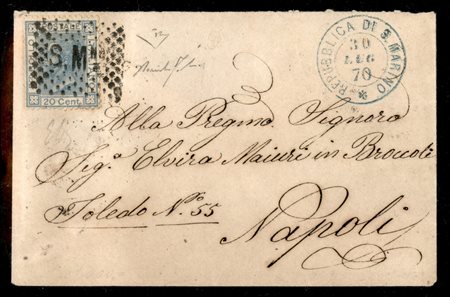 POSTAGE
S M
20 Cent.
REPUBBLICA DI S. MARINO
30
70
Alla Pregma Signora
Sig.a Elvira Maiuri in Broccoli
Toledo No. 55
Napoli